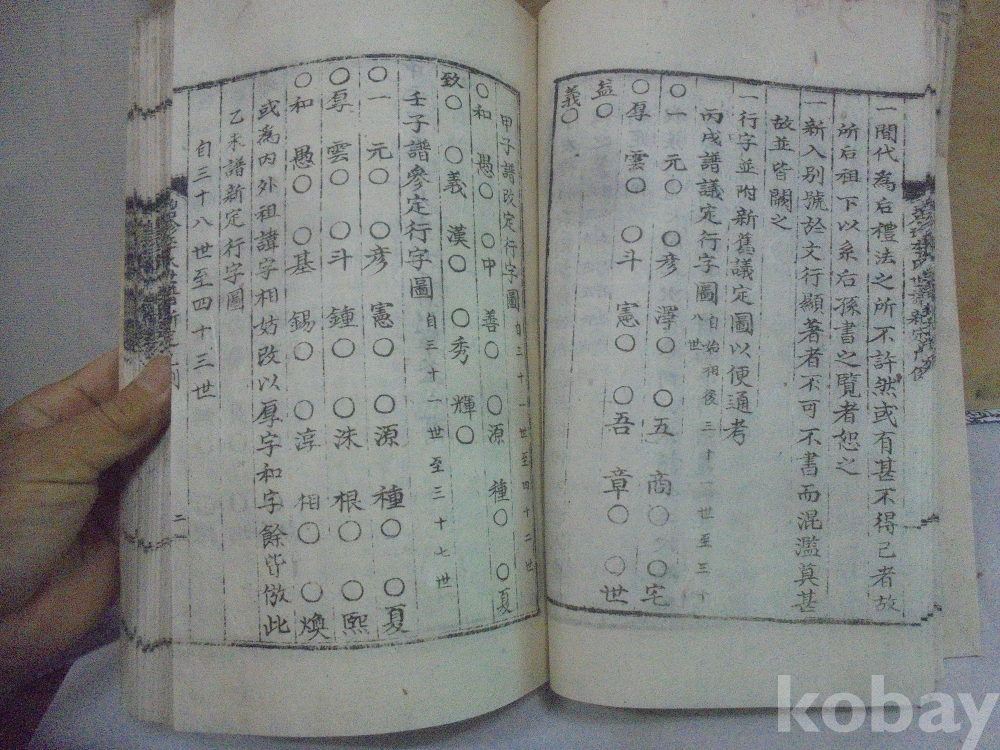 一間代為后禮法之所不許然或有甚不得已者故
所后祖下以系后孫書之覧者恕之
一新入别號於文行顯著者不可不書而混濫莫甚
故並皆闕之
一行字並附新舊議定圖以便通考
丙戌譜議定行字圖自始祖後三十一世至三十八世
○一 元○ ○彦 澤○ ○五 商○ ○宅
○厚 雲○ ○斗 憲○ ○吾 章○ ○世
益○
義○
甲子譜改定行字圖自三十一世至四十二世
○和 愚○ ○中 善○ ○源 種○ ○夏
致○ ○義 漢○ ○秀 輝○
壬子譜參定行字圖自三十一世至三十七世
○一 元○ ○彦 憲○ ○源 種○ ○夏
○厚 雲○ ○斗 鍾○ ○洙 根○ ○熙
○和 愚○ ○基 錫○ ○淳 相○ ○煥
或為内外祖諱字相妨改以厚字和字餘皆倣此
乙未譜新定行字圖
自三十八世至四十三世
二
kobay